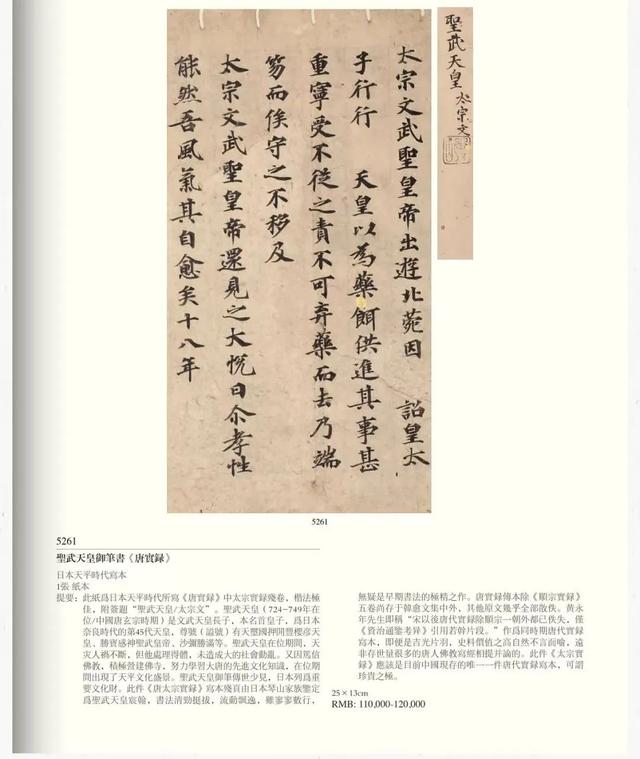 聖武天皇 太宗文
太宗文武聖皇帝出遊北菀因 詔皇太
子行行 天皇以為藥餌供進其事甚
重寧受不從之責不可弃藥而去乃端
笏而俟守之不移及
太宗文武聖皇帝還見之大悅曰尒孝性
能然吾風氣其自愈矣十八年
5261
5261
聖武天皇御筆書《唐實録》
日本天平時代寫本
1張 紙本
提要：此紙爲日本天平時代所寫《唐實録》中太宗實録殘卷，楷法極
佳，附簽題“聖武天皇/太宗文”。聖武天皇（724-749年在
位/中國唐玄宗時期）是文武天皇長子，本名首皇子，爲日本
奈良時代的第45代天皇，尊號（謚號）有天璽國押開豐櫻彦天
皇、勝寶感神聖武皇帝、沙彌勝滿等。聖武天皇在位期間，天
灾人禍不斷，但他處理得體，未造成大的社會動亂。又因篤信
佛教，積極營建佛寺，努力學習大唐的先進文化知識，在位期
間出現了天平文化盛景。聖武天皇御筆傳世少見，日本列爲重
要文化財。此件《唐太宗實録》寫本殘頁由日本琴山家族鑒定
爲聖武天皇宸翰，書法清勁挺拔，流動飄逸，雖寥寥數行，
無疑是早期書法的極精之作。唐實録傳本除《順宗實録》
五卷尚存于韓愈文集中外，其他原文幾乎全部散佚。黄永
年先生即稱“宋以後唐代實録除順宗一朝外都已佚失，僅
《資治通鑒考异》引用若幹片段。”作爲同時期唐代實録
寫本，即便是吉光片羽，史料價值之高自然不言而喻，遠
非存世量很多的唐人佛教寫經相提并論的。此件《太宗實
録》應該是目前中國現存的唯一一件唐代實録寫本，可謂
珍貴之極。
25×13cm
RMB: 110,000-120,000